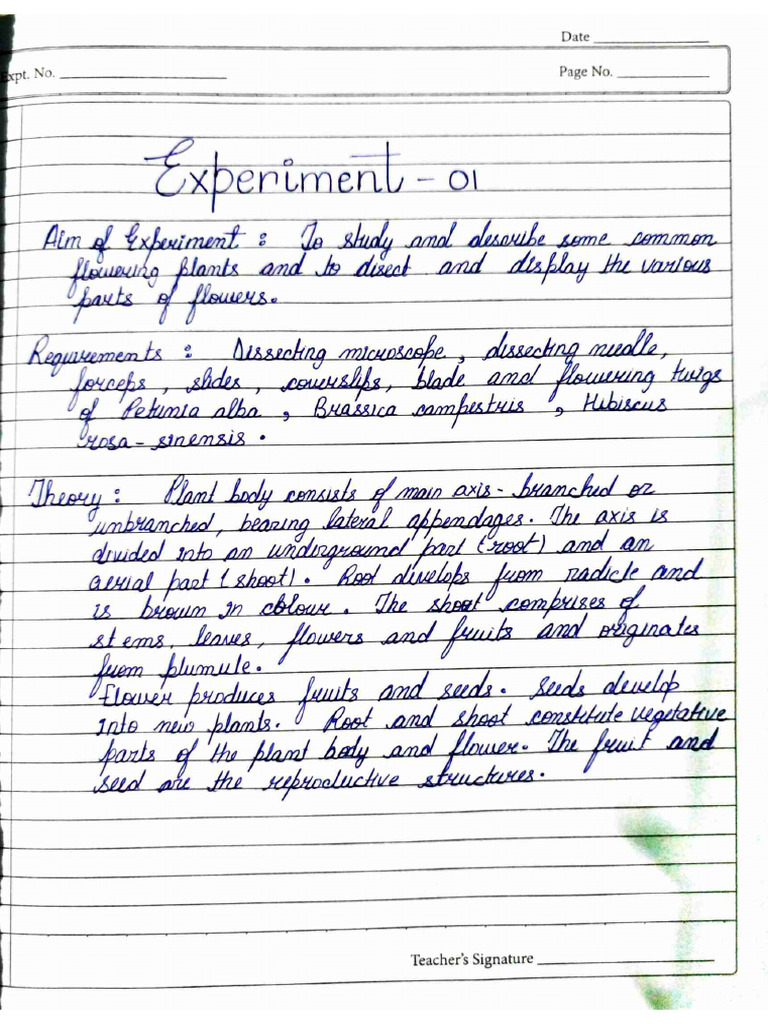 Date
Expt. No.
Page No.
Experiment - 01
Aim of Experiment : To study and describe some common
flowering plants and to disect and display the various
parts of flowers.
Requirements : Dissecting microscope, dissecting needle,
forceps, slides, coverslips, blade and flowering twigs
of Petunia alba, Brassica campestris, Hibiscus
rosa-sinensis.
Theory : Plant body consists of main axis - branched or
unbranched, bearing lateral appendages. The axis is
divided into an underground part (root) and an
aerial part (shoot). Root develops from radicle and
is brown in colour. The shoot comprises of
stems, leaves, flowers and fruits and originates
from plumule.
Flower produces fruits and seeds. Seeds develop
into new plants. Root and shoot constitute vegetative
parts of the plant body and flower. The fruit and
seed are the reproductive structures.
Teacher's Signature